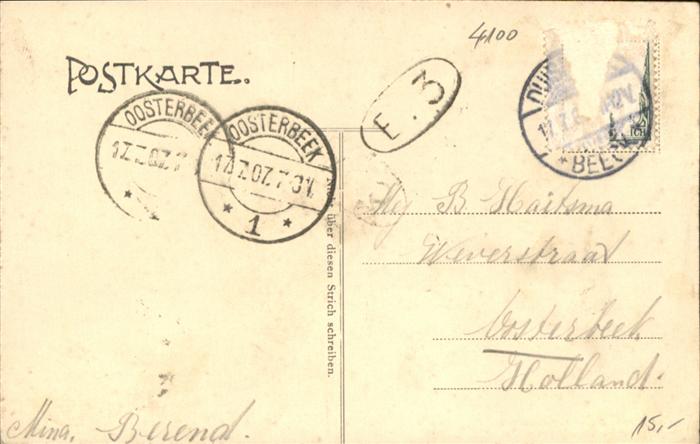 4100
POSTKARTE.
OOSTERBEEK
17.7.07.7
OOSTERBEEK
17.7.07.7-8V.
* 1 *
E. 3
DUI
* BEE
über diesen Strich schreiben.
B Haitsma
Weverstraat
Oosterbeek
Holland.
Mina. Berend.
15,-